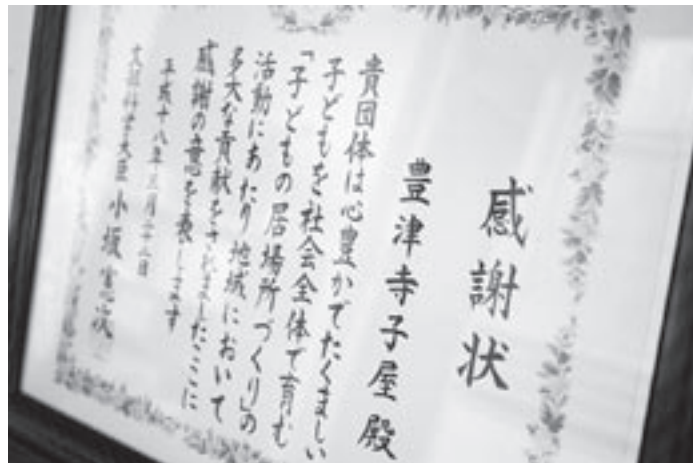 感謝状
豊津寺子屋殿
貴団体は心豊かでたくましい
子どもを社会全体で育む
「子どもの居場所づくり」の
活動にあたり地域において
多大な貢献をされましたここに
感謝の意を表します
平成十八年三月二十二日
文部科学大臣 小坂憲次